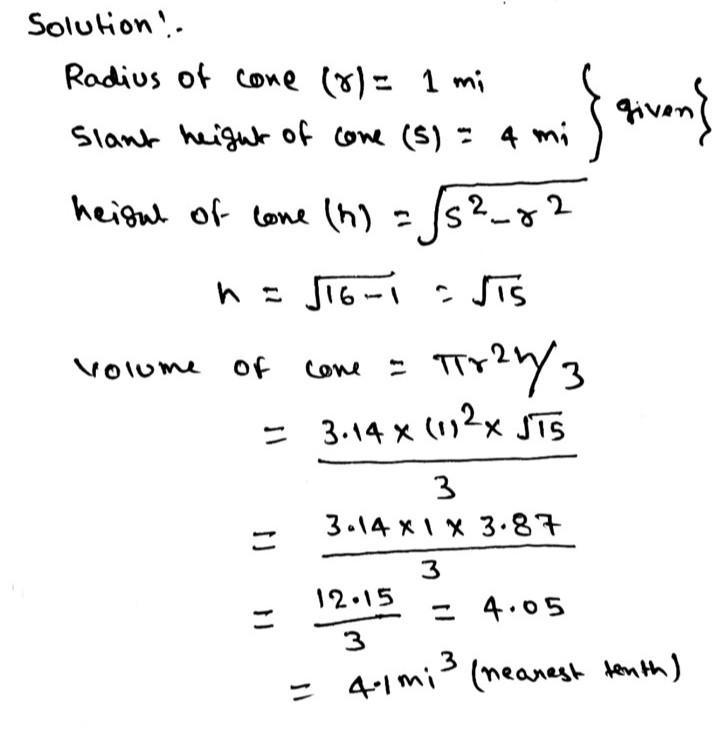 Solution :-
Radius of cone (r) = 1 mi
Slant height of cone (S) = 4 mi } given }
height of cone (h) = √s² - r²
h = √16-1 = √15
Volume of cone = πr²h/3
= 3.14 × (1)² × √15
3
= 3.14 × 1 × 3.87
3
= 12.15 = 4.05
3
= 4.1 mi³ (nearest tenth)